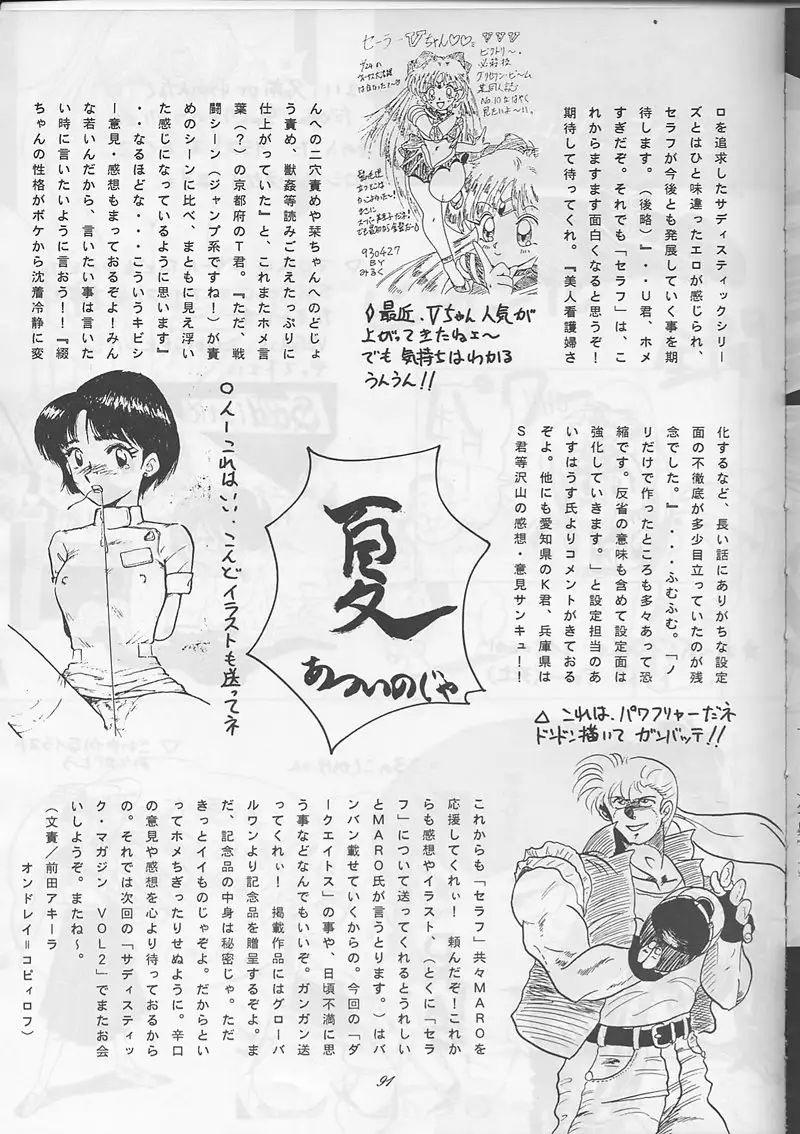 ロを追求したサディスティックシリー
ズとはひと味違ったエロが感じられ、
セラフが今後とも発展していく事を期
待します。(後略)』・・U君、ホメ
すぎだぞ。それでも「セラフ」は、こ
れからますます面白くなると思うぞ!
期待して待ってくれ。『美人看護婦さ
セーラーVちゃん♡♡
ビクトリー・
必殺技
930427
BY
みるく
◊最近、Vちゃん人気が
上がってきたねェ〜
でも気持ちはわかる
うんうん!!
んへの二穴責めや栞ちゃんへのどじょ
う責め、獣姦等読みごたえたっぷりに
仕上がっていた』と、これまたホメ言
葉(?)の京都府のT君。『ただ、戦
闘シーン(ジャンプ系ですね!)が責
めのシーンに比べ、まともに見え浮い
た感じになっているように思います』
・・なるほどな・・・こういうキビシ
ー意見・感想もまっておるぞよ!みん
な若いんだから、言いたい事は言いた
い時に言いたいように言おう!!『綴
ちゃんの性格がボケから沈着冷静に変
化するなど、長い話にありがちな設定
面の不徹底が多少目立っていたのが残
念でした。』・・・ふむふむ。「ノ
リだけで作ったところも多々あって恐
縮です。反省の意味も含めて設定面は
強化していきます。」と設定担当のあ
いすはうす氏よりコメントがきておる
ぞよ。他にも愛知県のK君、兵庫県は
S君等沢山の感想・意見サンキュ!!
夏
あついのじゃ
○人ーこれはい、・・こんどイラストも送ってネ
△ これは、パワフリャーだネ
ドンドン描いて ガンバッテ!!
これからも「セラフ」共々MAROを
応援してくれぃ!頼んだぞ!これか
らも感想やイラスト、(とくに「セラ
フ」について送ってくれるとうれしい
とMARO氏が言うとります。)はバ
ンバン載せていくからの。今回の「ダ
ークエイトス」の事や、日頃不満に思
う事などなんでもいいぞ。ガンガン送
ってくれぃ!掲載作品にはグローバ
ルワンより記念品を贈呈するぞよ。ま
だ、記念品の中身は秘密じゃ。ただ
きっとイイものじゃぞよ。だからとい
ってホメちぎったりせぬように。辛口
の意見や感想を心より待っておるから
の。それでは次回の「サディスティッ
ク・マガジン VOL2」でまたお会
いしようぞ。またね〜。
(文責/前田アキーラ
オンドレイ=コピィロフ)
91